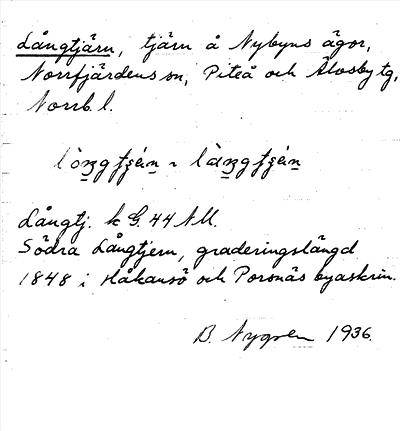 Långtjärn, tjärn å Nybyns ägor,
Norrfjärdens sn, Piteå och Älvsby tg,
Norrb. l.
Långtj. k G. 44 NU.
Södra Långtjern, graderingslängd
1848 i Håkansö och Porsnäs byaskrin.
B. Nygren 1936.